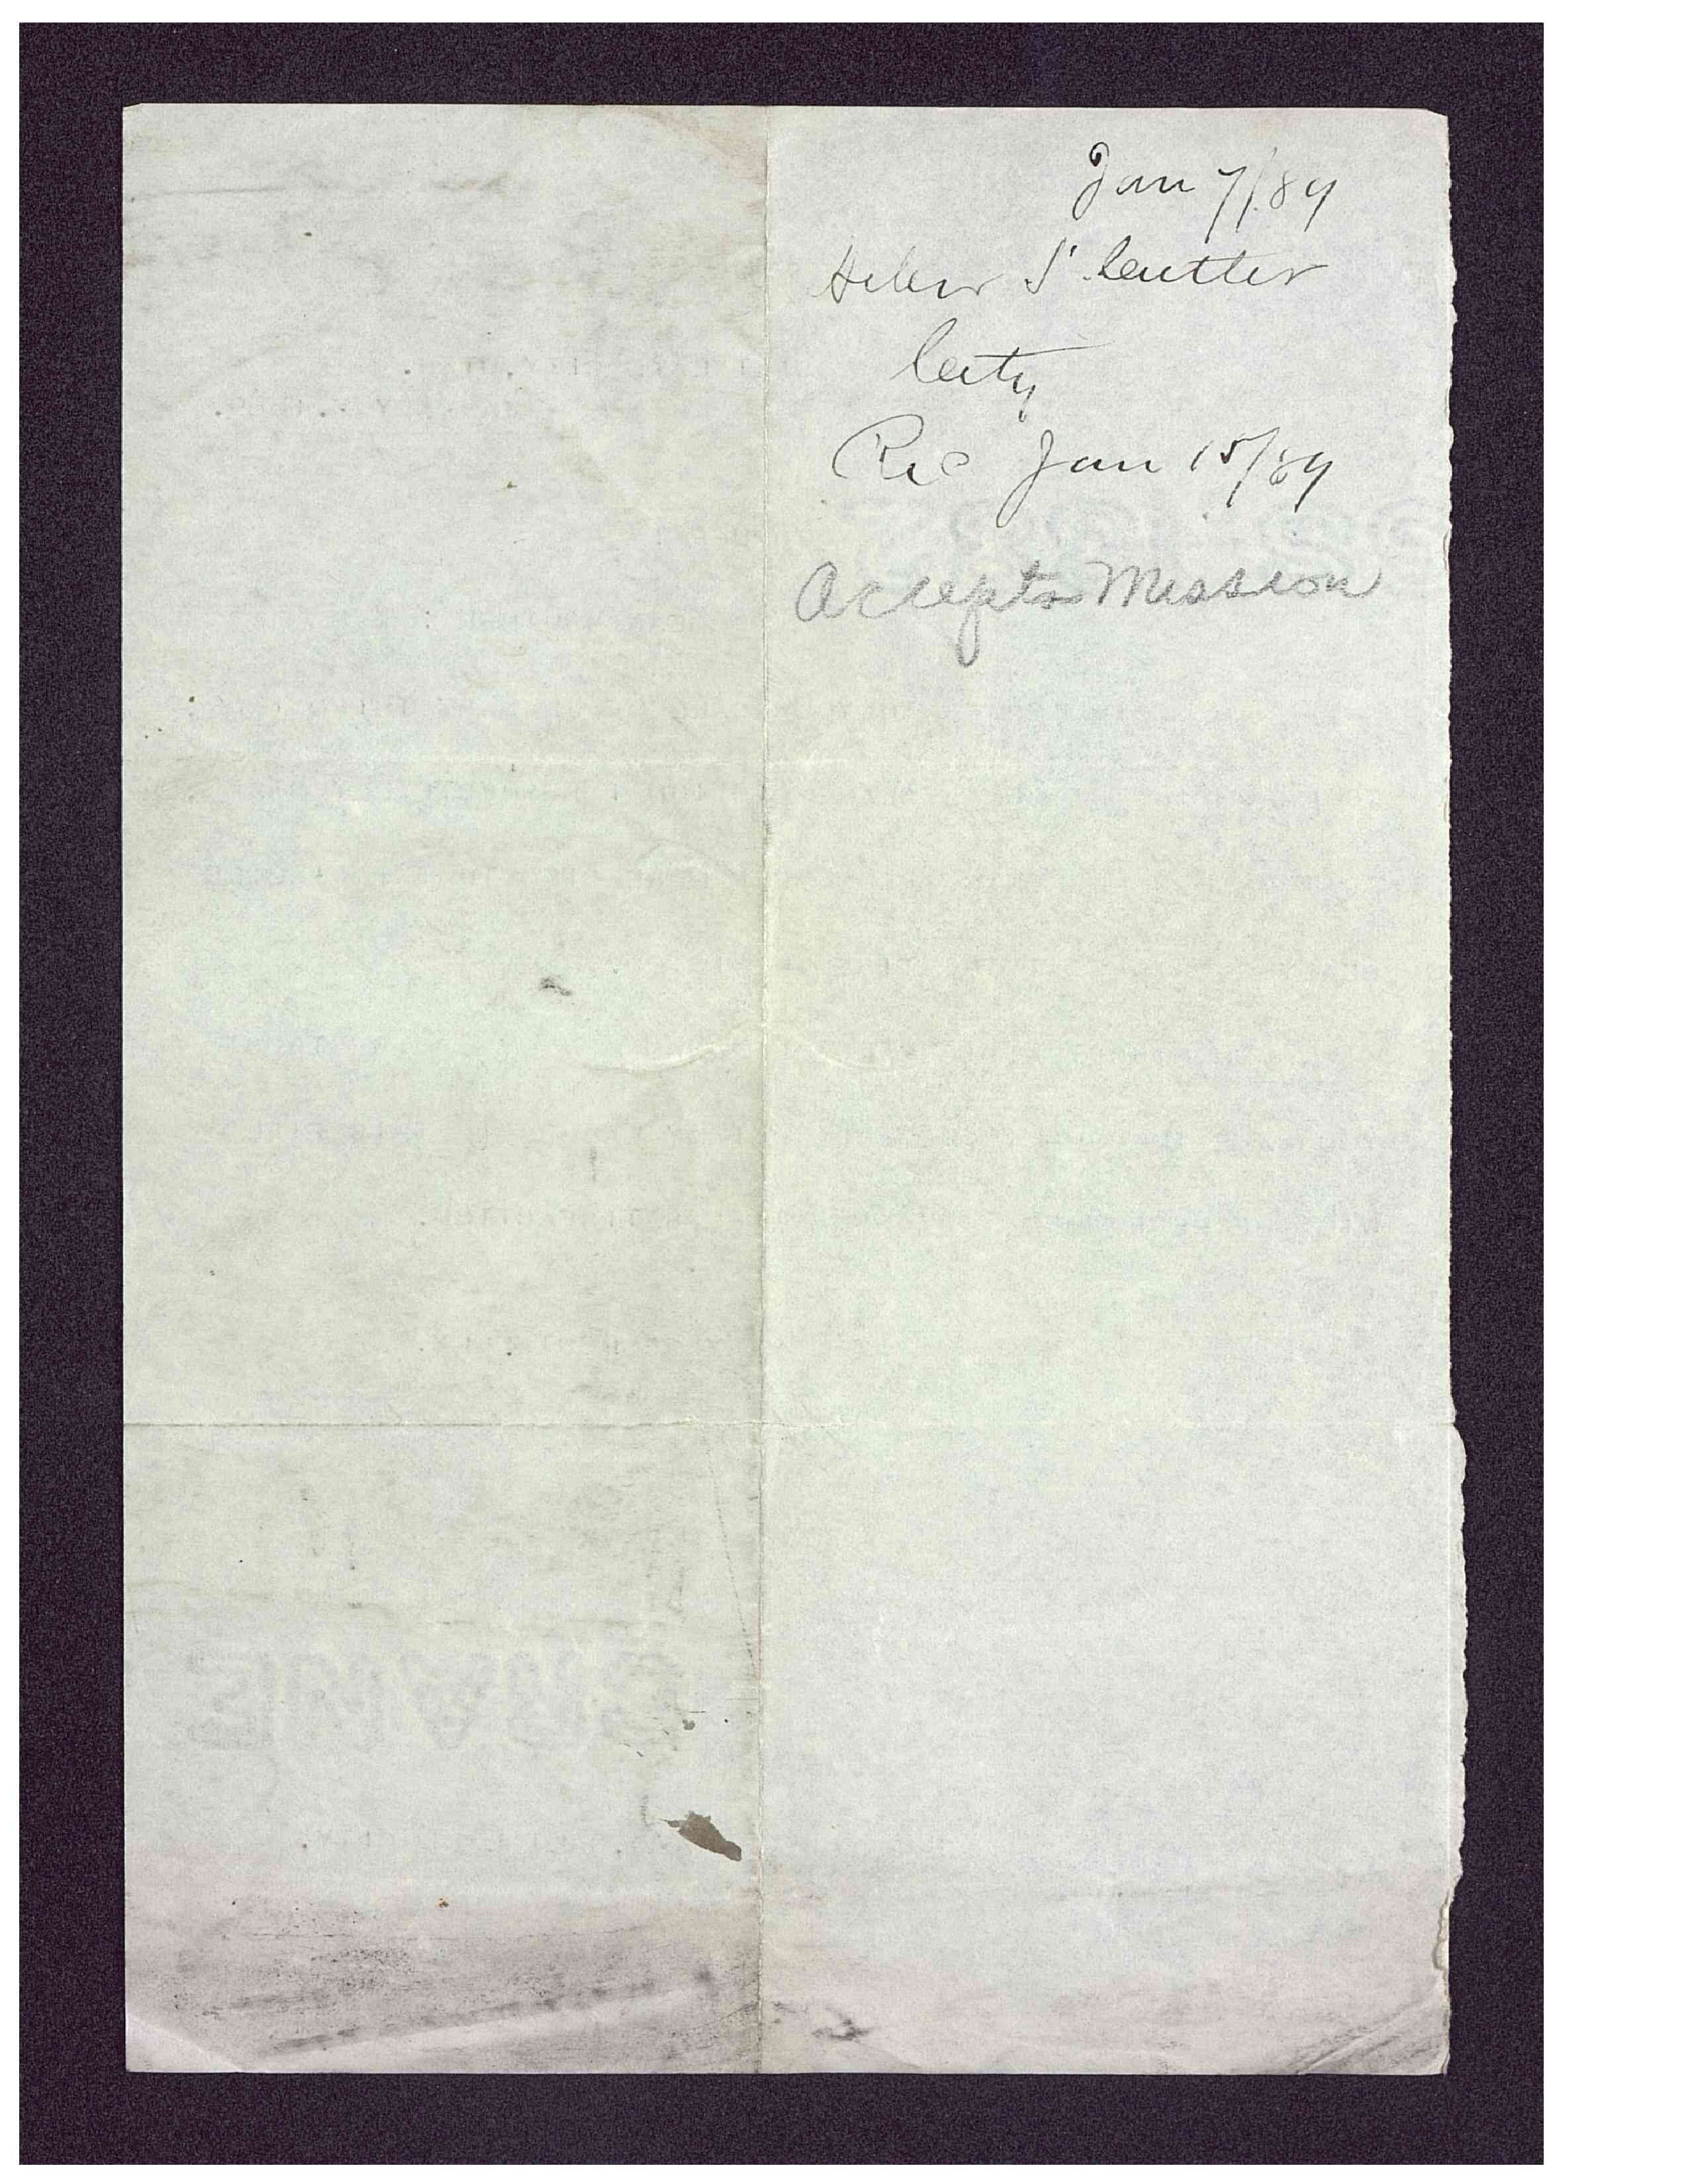 Jan 7/89
Heber S Cutler
City
Rec Jan 15/89
Accepts Mission